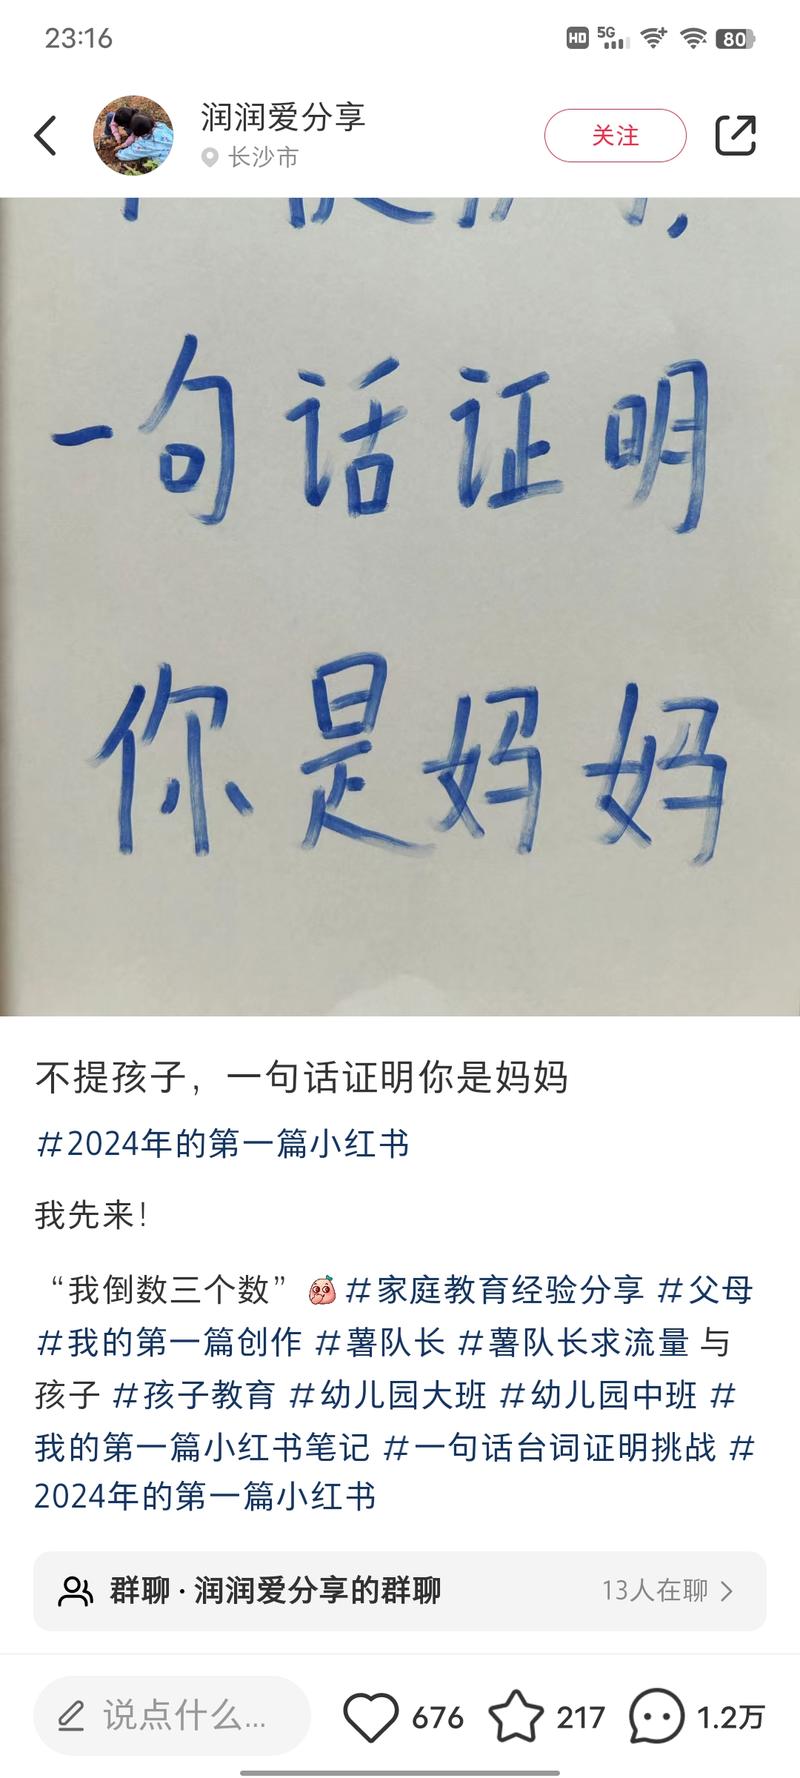 23:16
HD 5G 80
润润爱分享
长沙市
关注
一句话证明
你是妈妈
不提孩子，一句话证明你是妈妈
#2024年的第一篇小红书
我先来！
“我倒数三个数” #家庭教育经验分享 #父母
#我的第一篇创作 #薯队长 #薯队长求流量 与
孩子 #孩子教育 #幼儿园大班 #幼儿园中班 #
我的第一篇小红书笔记 #一句话台词证明挑战 #
2024年的第一篇小红书
群聊·润润爱分享的群聊 13人在聊
说点什么... 676 217 1.2万